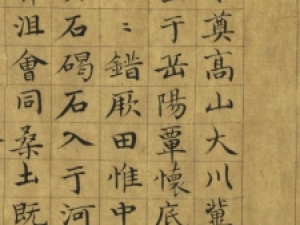 奠高山大川冀
于岳陽覃懷底
〻錯厥田惟中
右碣石入于河
沮會同桑土既